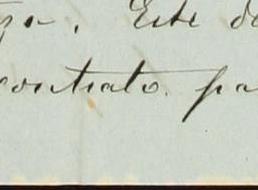 Este de
contrato. pa